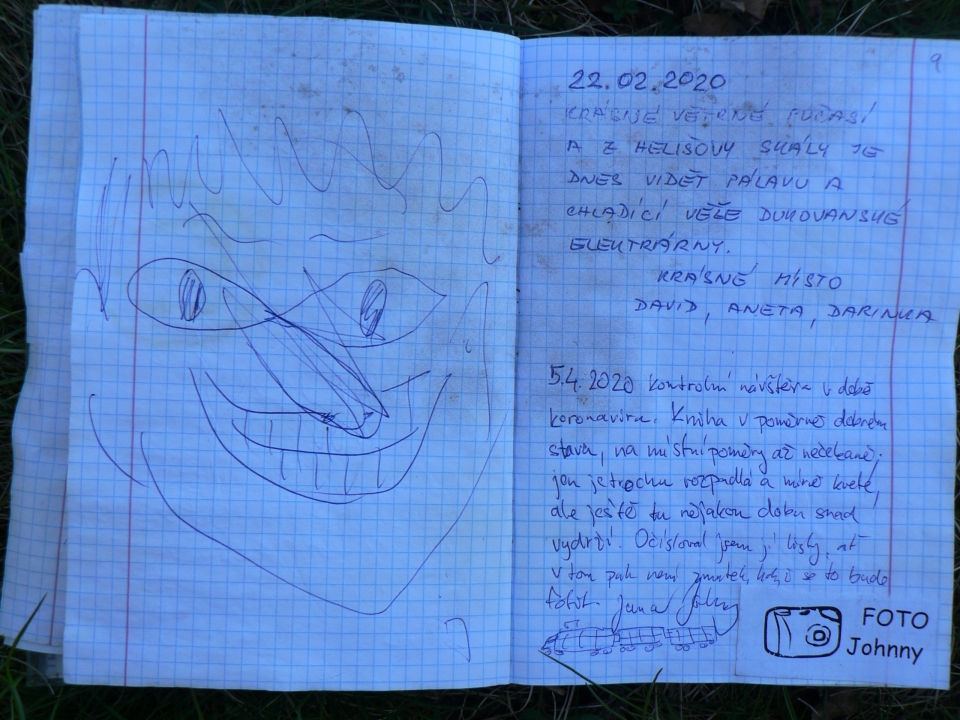 9
22.02.2020
KRÁSNÉ VĚTRNÉ POČASÍ
A Z HELIŠOVY SKÁLY JE
DNES VIDĚT PÁLAVU A
CHLADÍCÍ VĚŽE DUKOVANSKÉ
ELEKTRÁRNY.
KRÁSNÉ MÍSTO
DAVID, ANETA, DARINKA
5.4.2020 kontrolní návštěva v době
koronaviru. Kniha v poměrně dobrém
stavu, na místní poměry až nečekaně;
jen je trochu rozpadlá a mírně kvete,
ale ještě tu nějakou dobu snad
vydrží. Očísloval jsem jí listy, ať
v tom pak není zmatek, když se to bude
fotit.
FOTO
Johnny